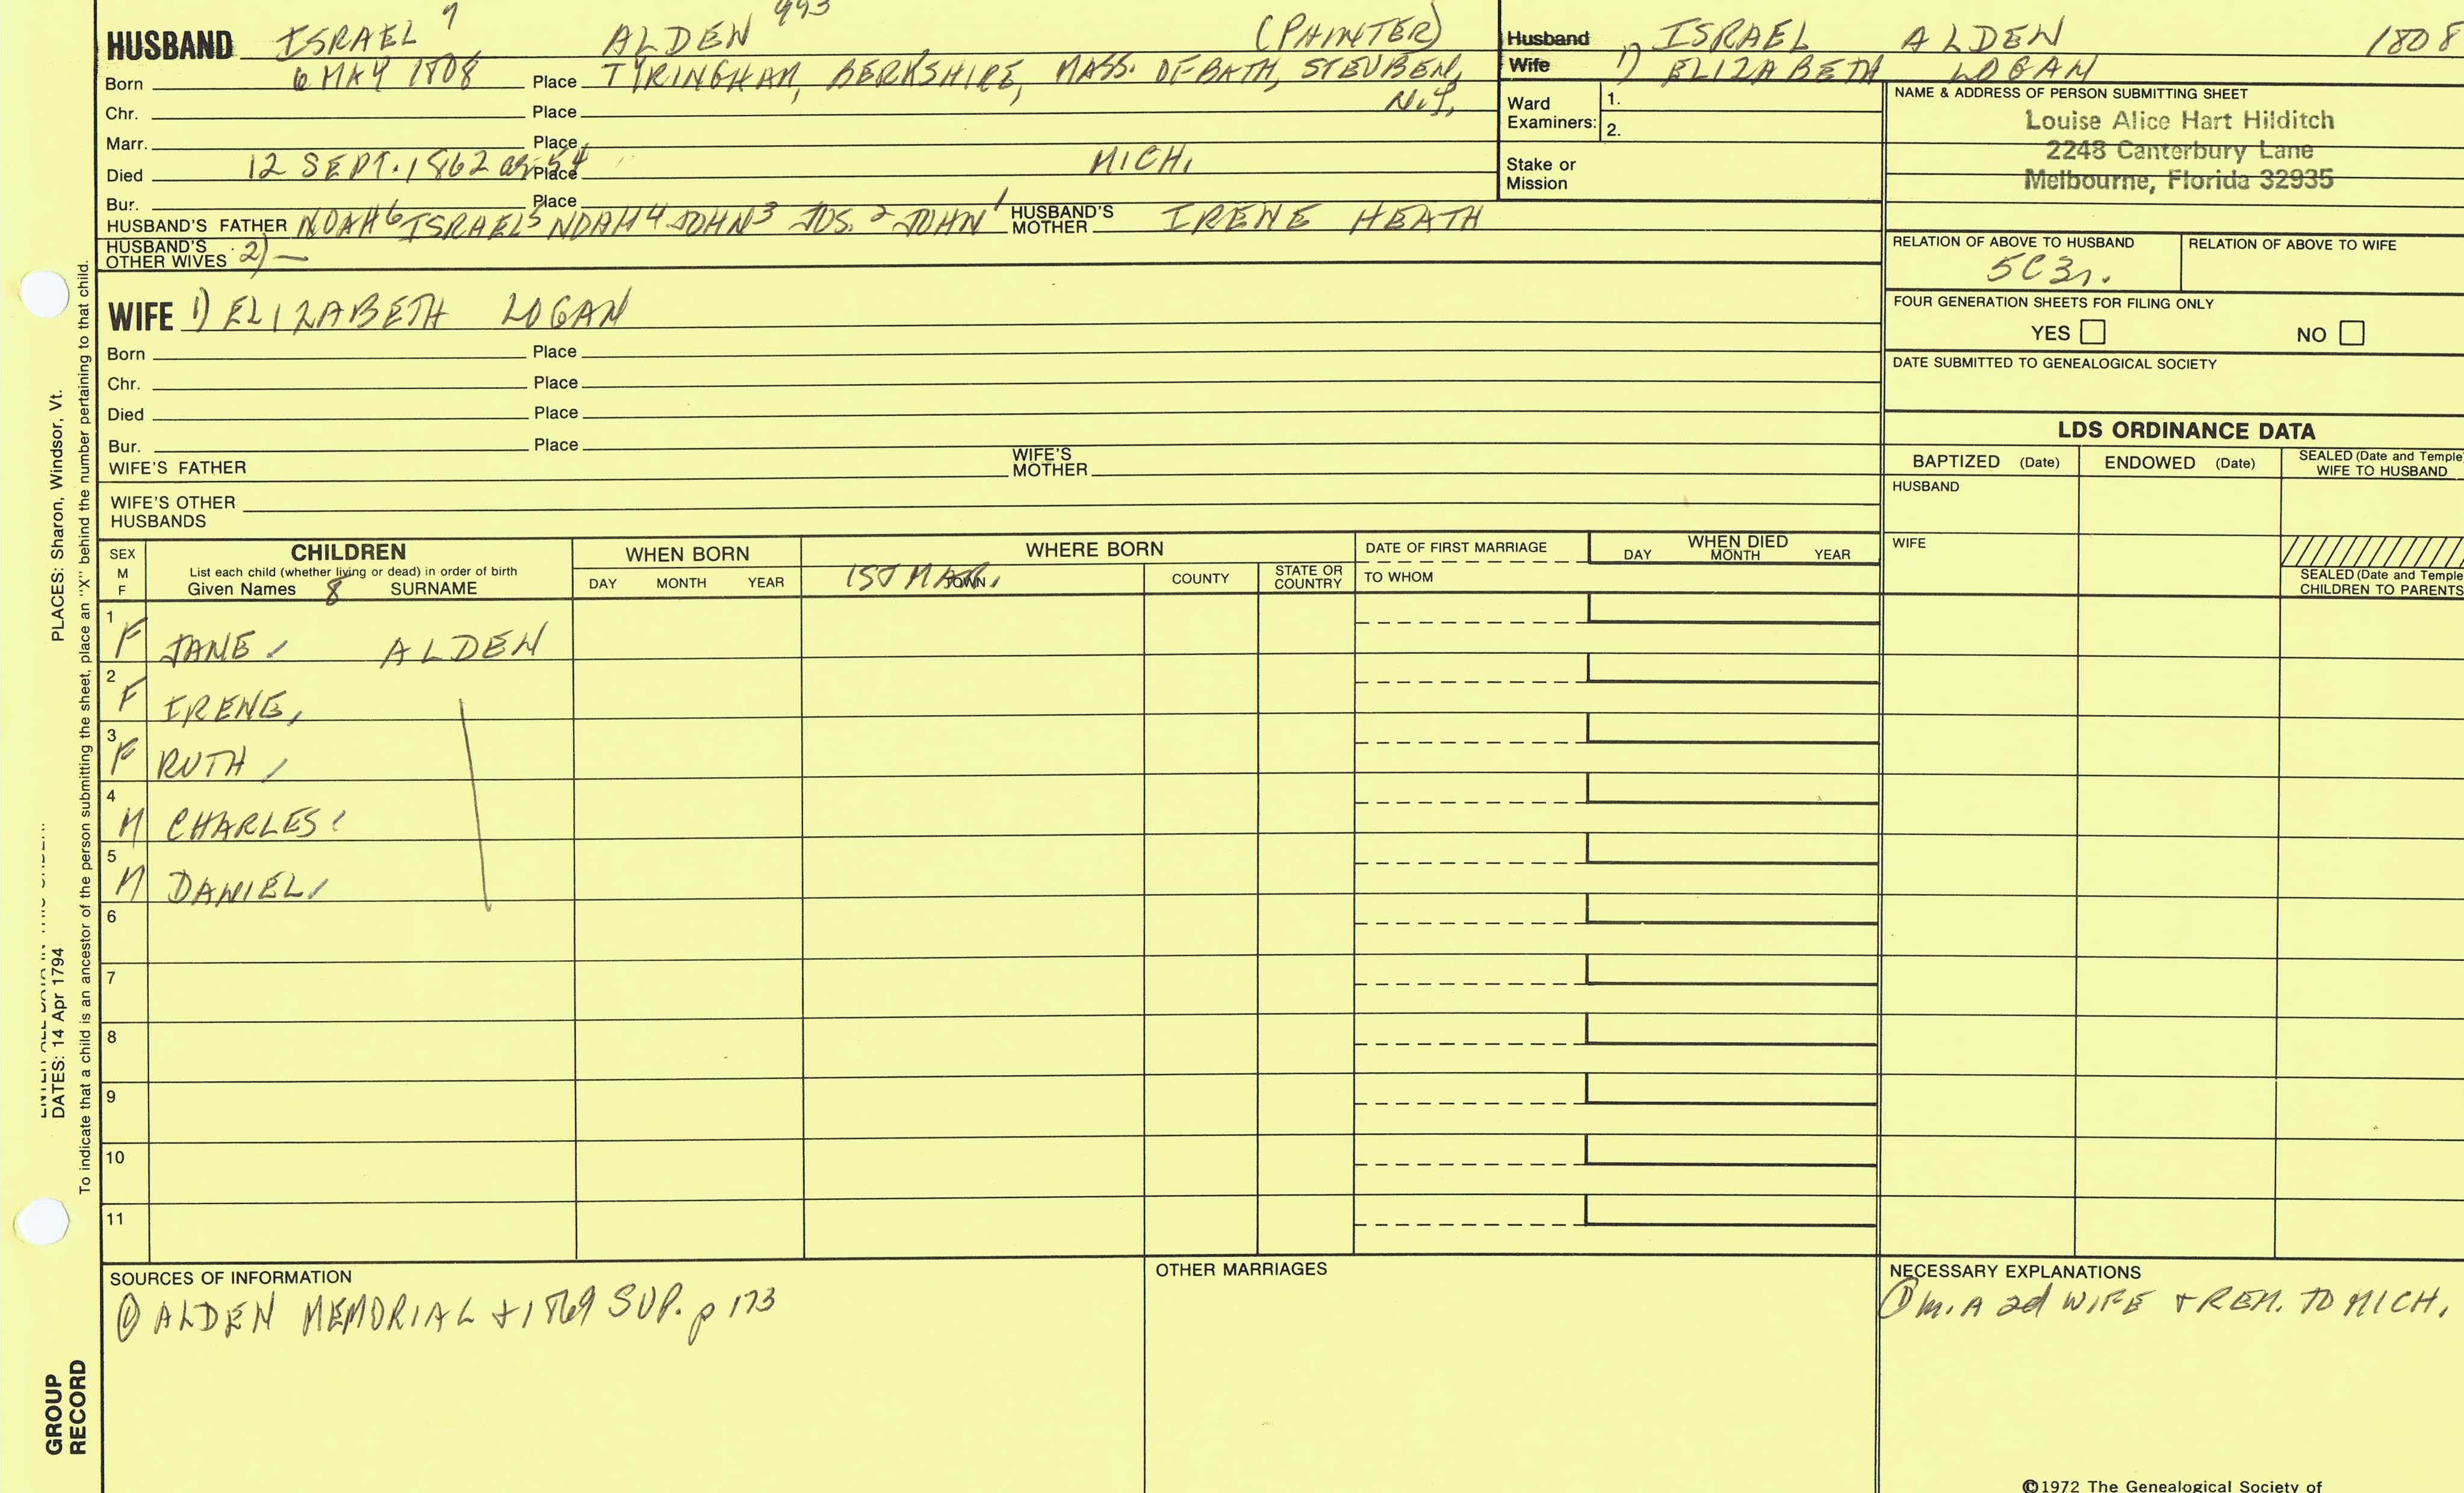 HUSBAND ISRAEL 7 ALDEN 993 (PAINTER)
Born 6 MAY 1808 Place TYRINGHAM, BERKSHIRE, MASS. OF BATH, STEUBEN, N.Y.
Chr. Place
Marr. Place
Died 12 SEPT. 1862 ae 54 Place MICH.
Bur. Place
HUSBAND'S FATHER NOAH 6 ISRAEL 5 NOAH 4 JOHN 3 JOS. 2 JOHN 1 HUSBAND'S MOTHER IRENE HEATH
HUSBAND'S OTHER WIVES 2) —
WIFE 1) ELIZABETH LOGAN
Born Place
Chr. Place
Died Place
Bur. Place
WIFE'S FATHER WIFE'S MOTHER
WIFE'S OTHER HUSBANDS
Husband 1) ISRAEL ALDEN 1808
Wife 1) ELIZABETH LOGAN
Ward Examiners: 1.
2.
Stake or Mission
NAME & ADDRESS OF PERSON SUBMITTING SHEET
Louise Alice Hart Hilditch
2248 Canterbury Lane
Melbourne, Florida 32935
RELATION OF ABOVE TO HUSBAND RELATION OF ABOVE TO WIFE
5C3r.
FOUR GENERATION SHEETS FOR FILING ONLY
YES NO
DATE SUBMITTED TO GENEALOGICAL SOCIETY
LDS ORDINANCE DATA
BAPTIZED (Date) ENDOWED (Date) SEALED (Date and Temple) WIFE TO HUSBAND
HUSBAND
WIFE
SEALED (Date and Temple) CHILDREN TO PARENTS
SEX M F
CHILDREN
List each child (whether living or dead) in order of birth
Given Names 8 SURNAME
WHEN BORN
DAY MONTH YEAR
WHERE BORN
1ST MAR. TOWN COUNTY STATE OR COUNTRY
DATE OF FIRST MARRIAGE
TO WHOM
WHEN DIED
DAY MONTH YEAR
1 F JANE, ALDEN
2 F IRENE,
3 F RUTH,
4 M CHARLES,
5 M DANIEL,
6
7
8
9
10
11
SOURCES OF INFORMATION
① ALDEN MEMORIAL + 1869 SUP. p 173
OTHER MARRIAGES
NECESSARY EXPLANATIONS
① m. A 2d WIFE + REM. TO MICH.
©1972 The Genealogical Society of
PLACES: Sharon, Windsor, Vt.
DATES: 14 Apr 1794
To indicate that a child is an ancestor of the person submitting the sheet, place an "X" behind the number pertaining to that child.
GROUP
RECORD